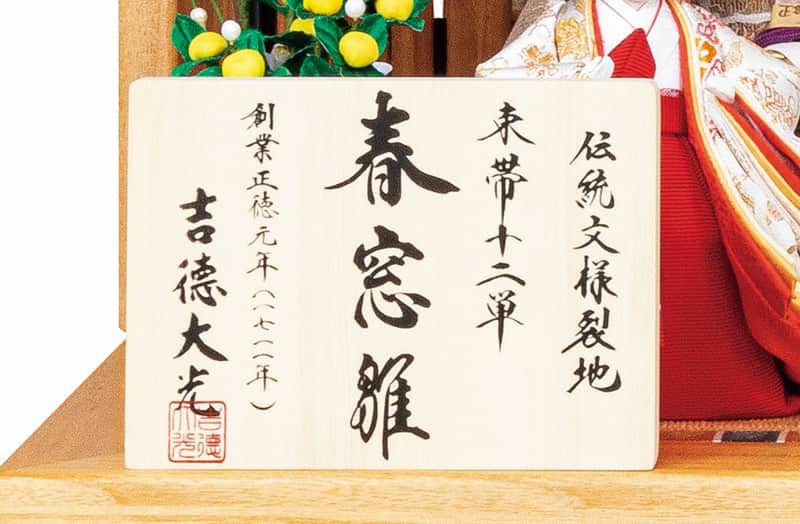 伝統文様裂地
束帯十二単
春窓雛
創業正徳元年（一七一一年）
吉德大光
吉德大光